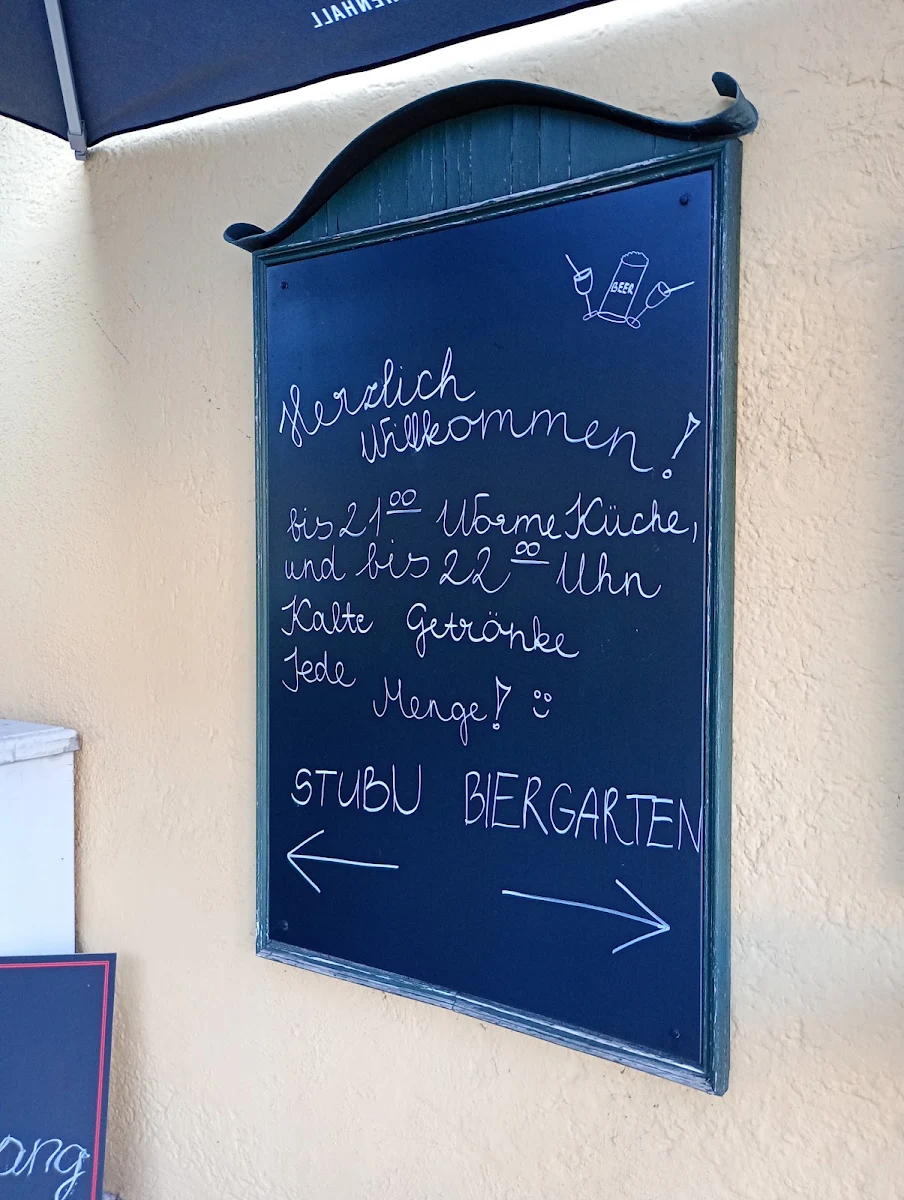 HENHALL
BEER
Herzlich
Willkommen!
bis 21⁰⁰ Warme Küche,
und bis 22⁰⁰ Uhr
Kalte Getränke
Jede
Menge! ü
STUBN BIERGARTEN
ang